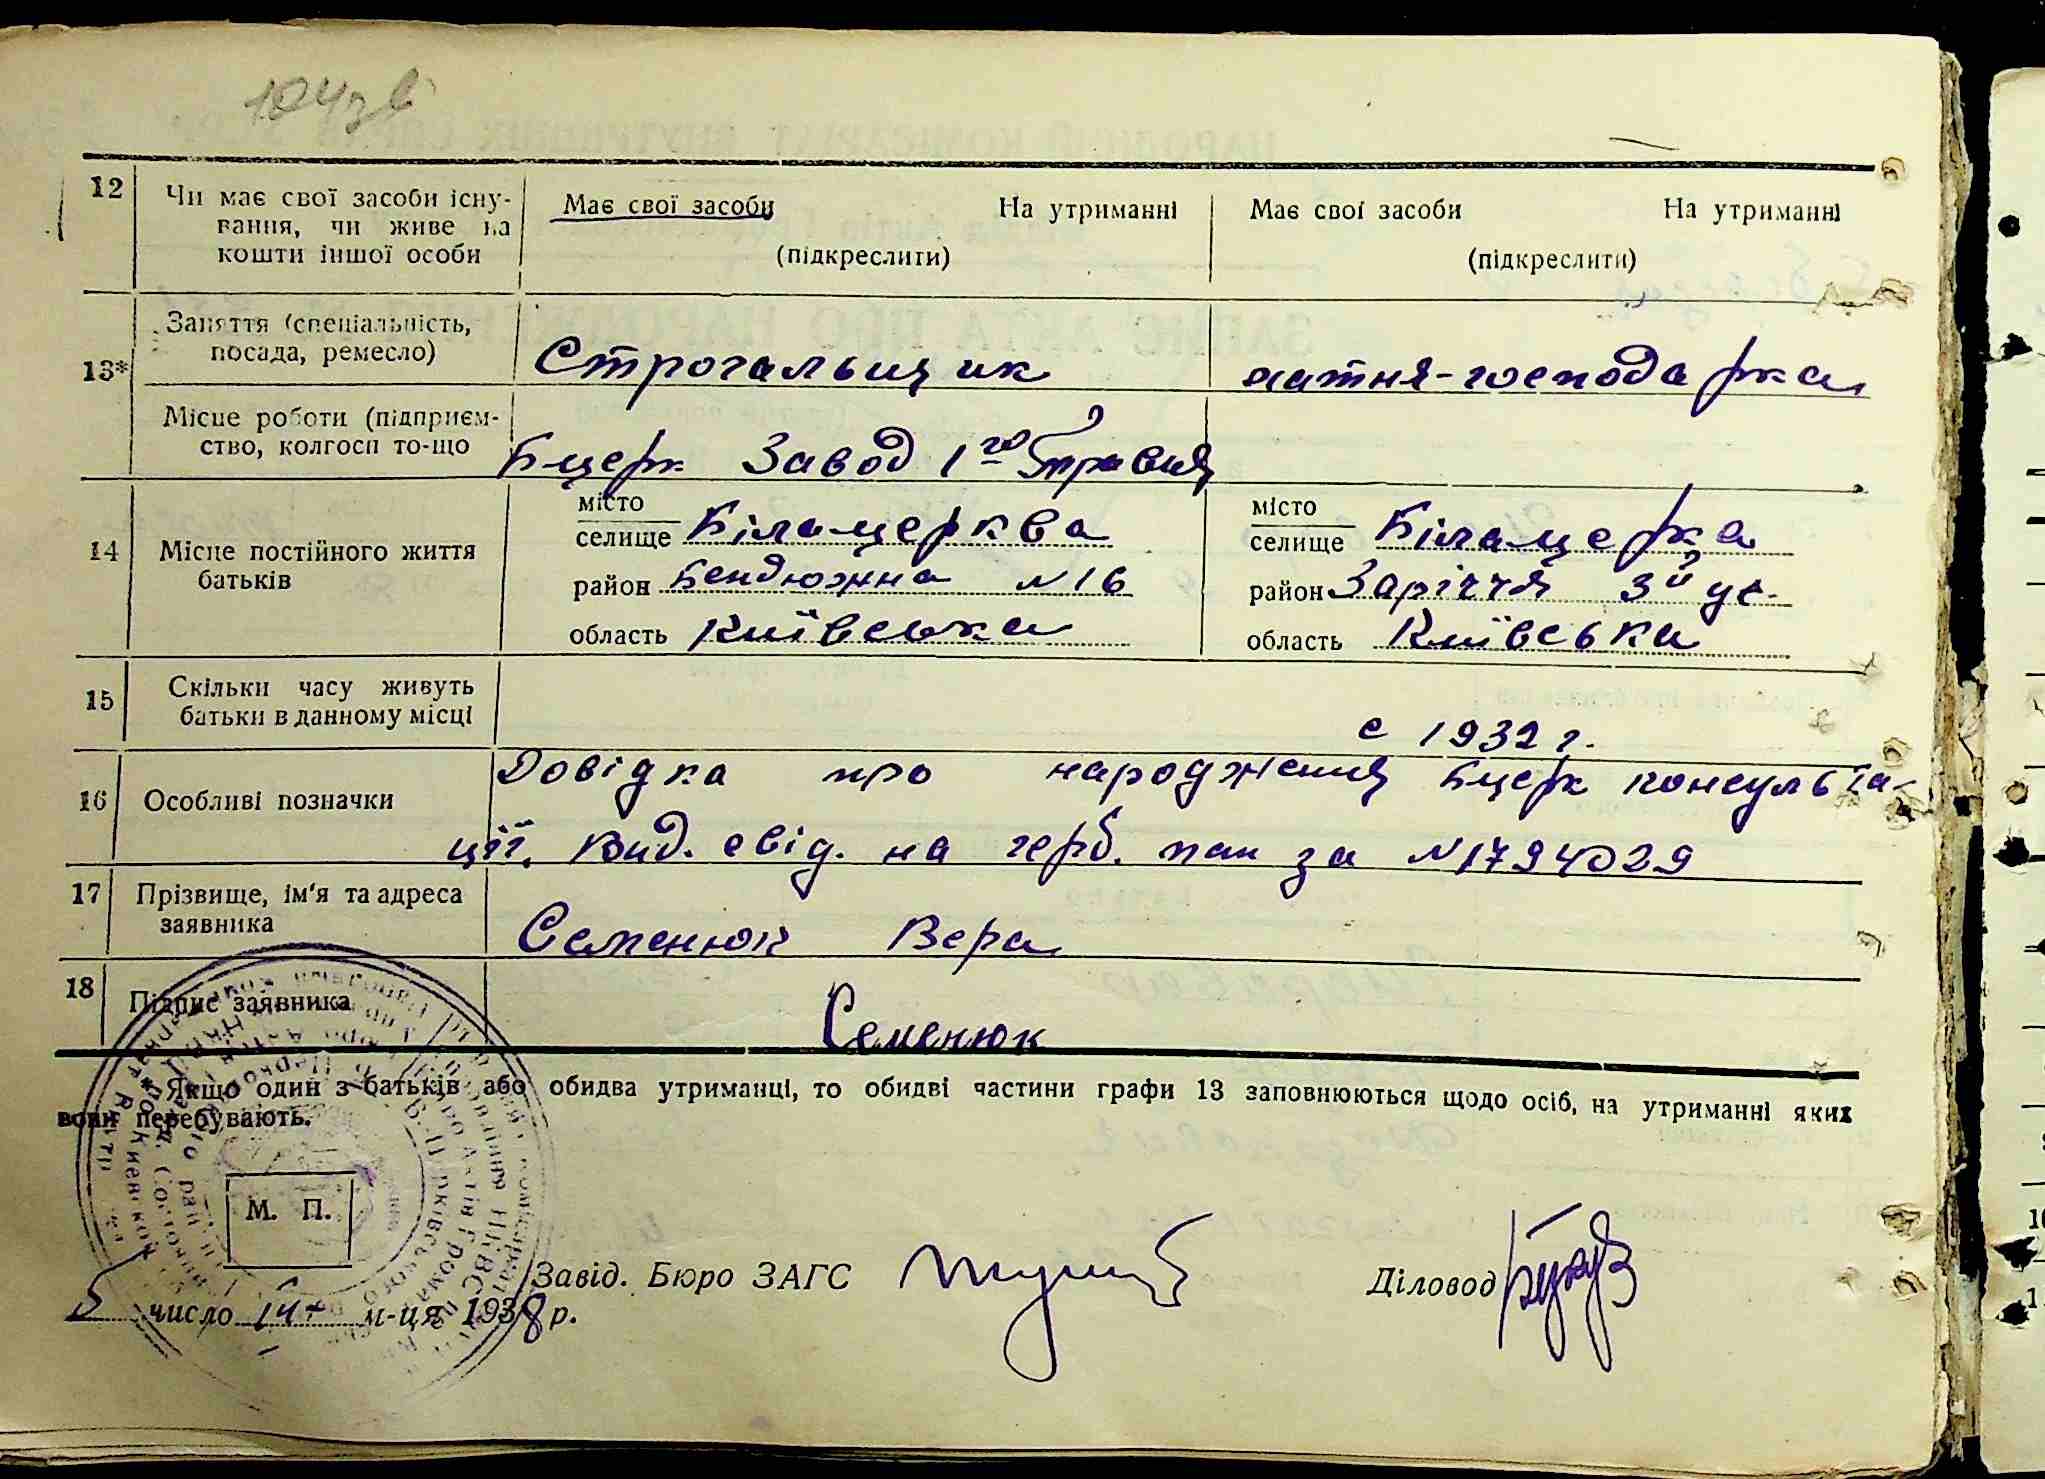 104зв
12 Чи має свої засоби існу-
вання, чи живе на
кошти іншої особи
Має свої засоби На утриманні
(підкреслити)
Має свої засоби На утриманні
(підкреслити)
13* Заняття (спеціальність,
посада, ремесло)
Строгальщик
хатня-господарка
Місце роботи (підприєм-
ство, колгосп то-що
Бцерк Завод 1го Травня
14 Місце постійного життя
батьків
місто
селище Білацерква
район Бендюжна №16
область Київська
місто
селище Білацерква
район Заріччя 3й
область Київська
15 Скільки часу живуть
батьки в данному місці
с 1932 г.
16 Особливі позначки
Довідка про народження Бцерк консульта-
ції. Вид. свід. на герб. пап за №1794029
17 Прізвище, ім'я та адреса
заявника
Семенюк Вера
18 Підпис заявника
Семенюк
Якщо один з батьків або обидва утриманці, то обидві частини графи 13 заповнюються щодо осіб, на утриманні яких
вони перебувають.
М. П.
Завід. Бюро ЗАГС
Діловод
5 число м-ця 1938 р.